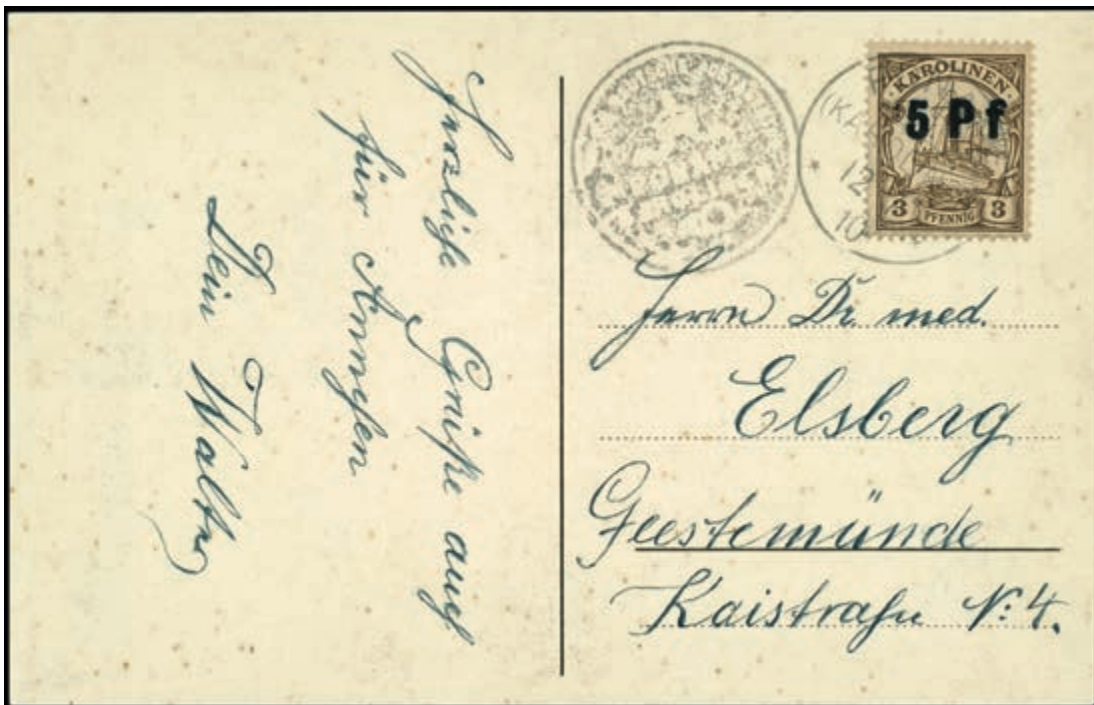 Herzliche Grüße auch
für Annchen
Dein Walter
KAROLINEN
5 Pf
3 PFENNIG 3
(KA
12
10
Herrn Dr. med.
Elsberg
Geestemünde
Kaistraße No: 4.